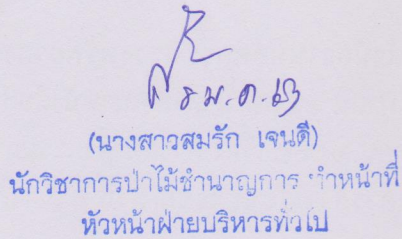 ๘ ม.ค. ๖๓
(นางสาวสมรัก เจนดี)
นักวิชาการป่าไม้ชำนาญการ ทำหน้าที่
หัวหน้าฝ่ายบริหารทั่วไป